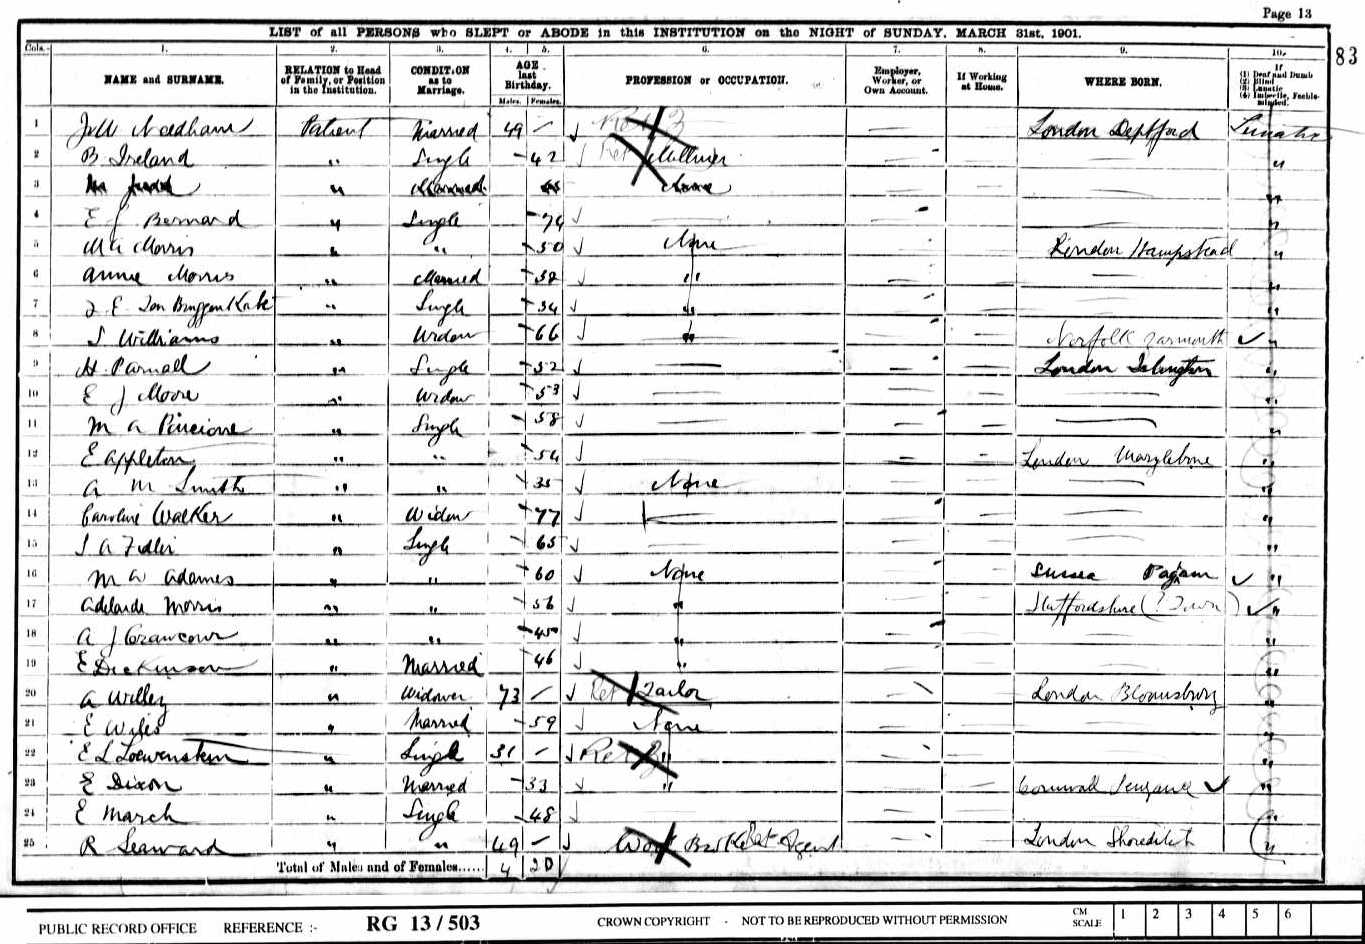 Page 13
83
LIST of all PERSONS who SLEPT or ABODE in this INSTITUTION on the NIGHT of SUNDAY, MARCH 31st, 1901.
Cols. 1. 2. 3. 4. 5. 6. 7. 8. 9. 10.
NAME and SURNAME. RELATION to Head of Family, or Position in the Institution. CONDITION as to Marriage. AGE last Birthday. Males. Females. PROFESSION or OCCUPATION. Employer, Worker, or Own Account. If Working at Home. WHERE BORN. If (1) Deaf and Dumb (2) Blind (3) Lunatic (4) Imbecile, Feeble-minded.
1 Needham Patient Married 49 – London Deptford Lunatic
2 B Ireland " Single 42 Ret Milliner "
3 " Married None "
4 E J Bernard " Single 74 "
5 M A Morris " " 50 None London Hampstead "
6 Annie Morris " Married 32 " "
7 J E Ten Bruggen Kate " Single 34 " "
8 S Williams " Widow 66 " Norfolk Yarmouth "
9 H Parnall " Single 52 London Islington "
10 E J Moore " Widow 53 "
11 M A " Single 58 "
12 E Appleton " " 54 London Marylebone "
13 A M Smith " " 35 None "
14 Caroline Walker " Widow 77 "
15 S A Fidler " Single 65 "
16 M A Adames " " 60 None Sussex Pagam "
17 Adelaide Morris " " 56 " Staffordshire (? Town) "
18 A J Crawcour " " 45 " "
19 E Dickinson " Married 46 " "
20 A Willey " Widower 73 – Ret Tailor London Bloomsbury "
21 E Wiles " Married 59 None "
22 E L Loewenstein " Single 31 – Ret " "
23 E Dixon " Married 33 " Cornwall Penzance "
24 E March " Single 48 "
25 R Seaward " " 49 – Agent London Shoreditch "
Total of Males and of Females...... 4 20
PUBLIC RECORD OFFICE REFERENCE :- RG 13 / 503 CROWN COPYRIGHT - NOT TO BE REPRODUCED WITHOUT PERMISSION CM SCALE 1 2 3 4 5 6